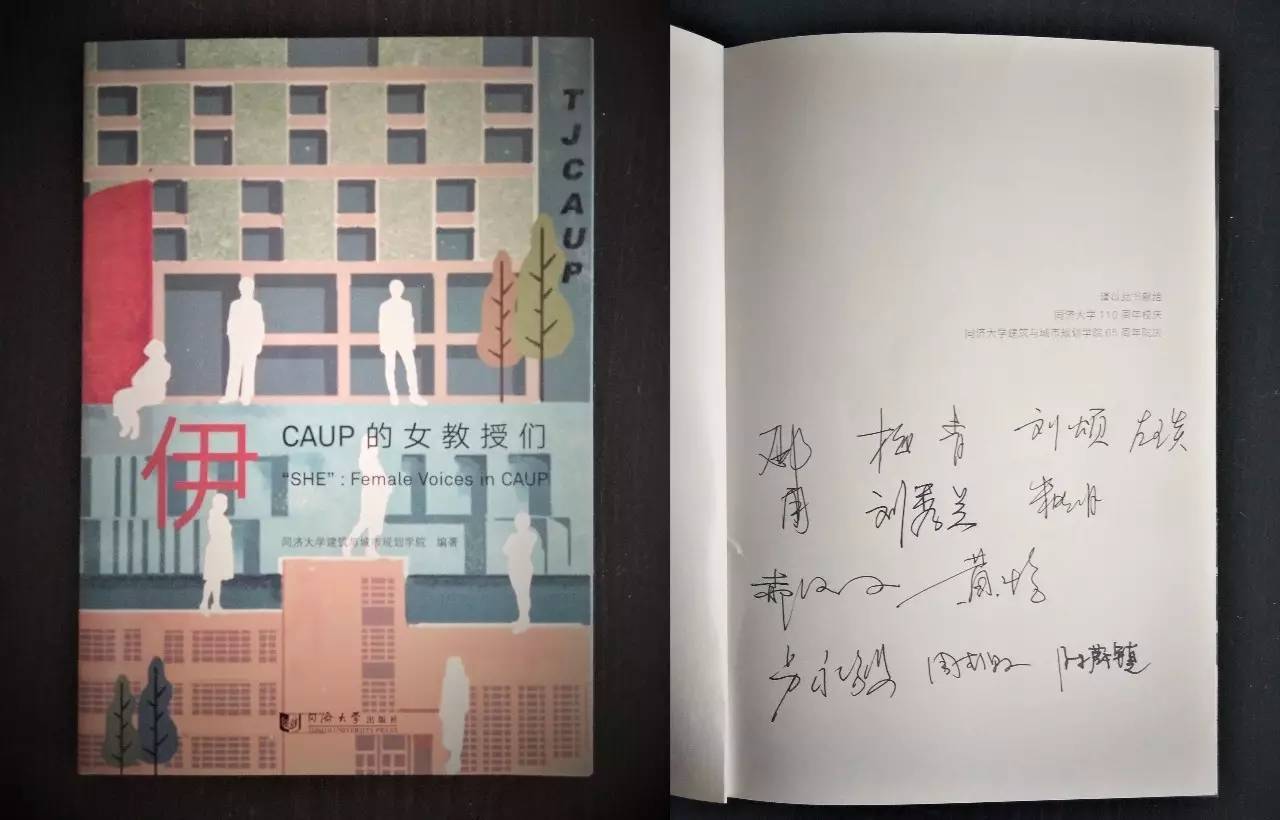 TJCAUP
伊
CAUP 的女教授们
“SHE” : Female Voices in CAUP
同济大学建筑与城市规划学院 编著
同济大学出版社
TONGJI UNIVERSITY PRESS
谨以此书献给
同济大学 110 周年校庆
同济大学建筑与城市规划学院 65 周年院庆
刘颂
刘秀兰
黄怡
卢永毅
陈蔚镇